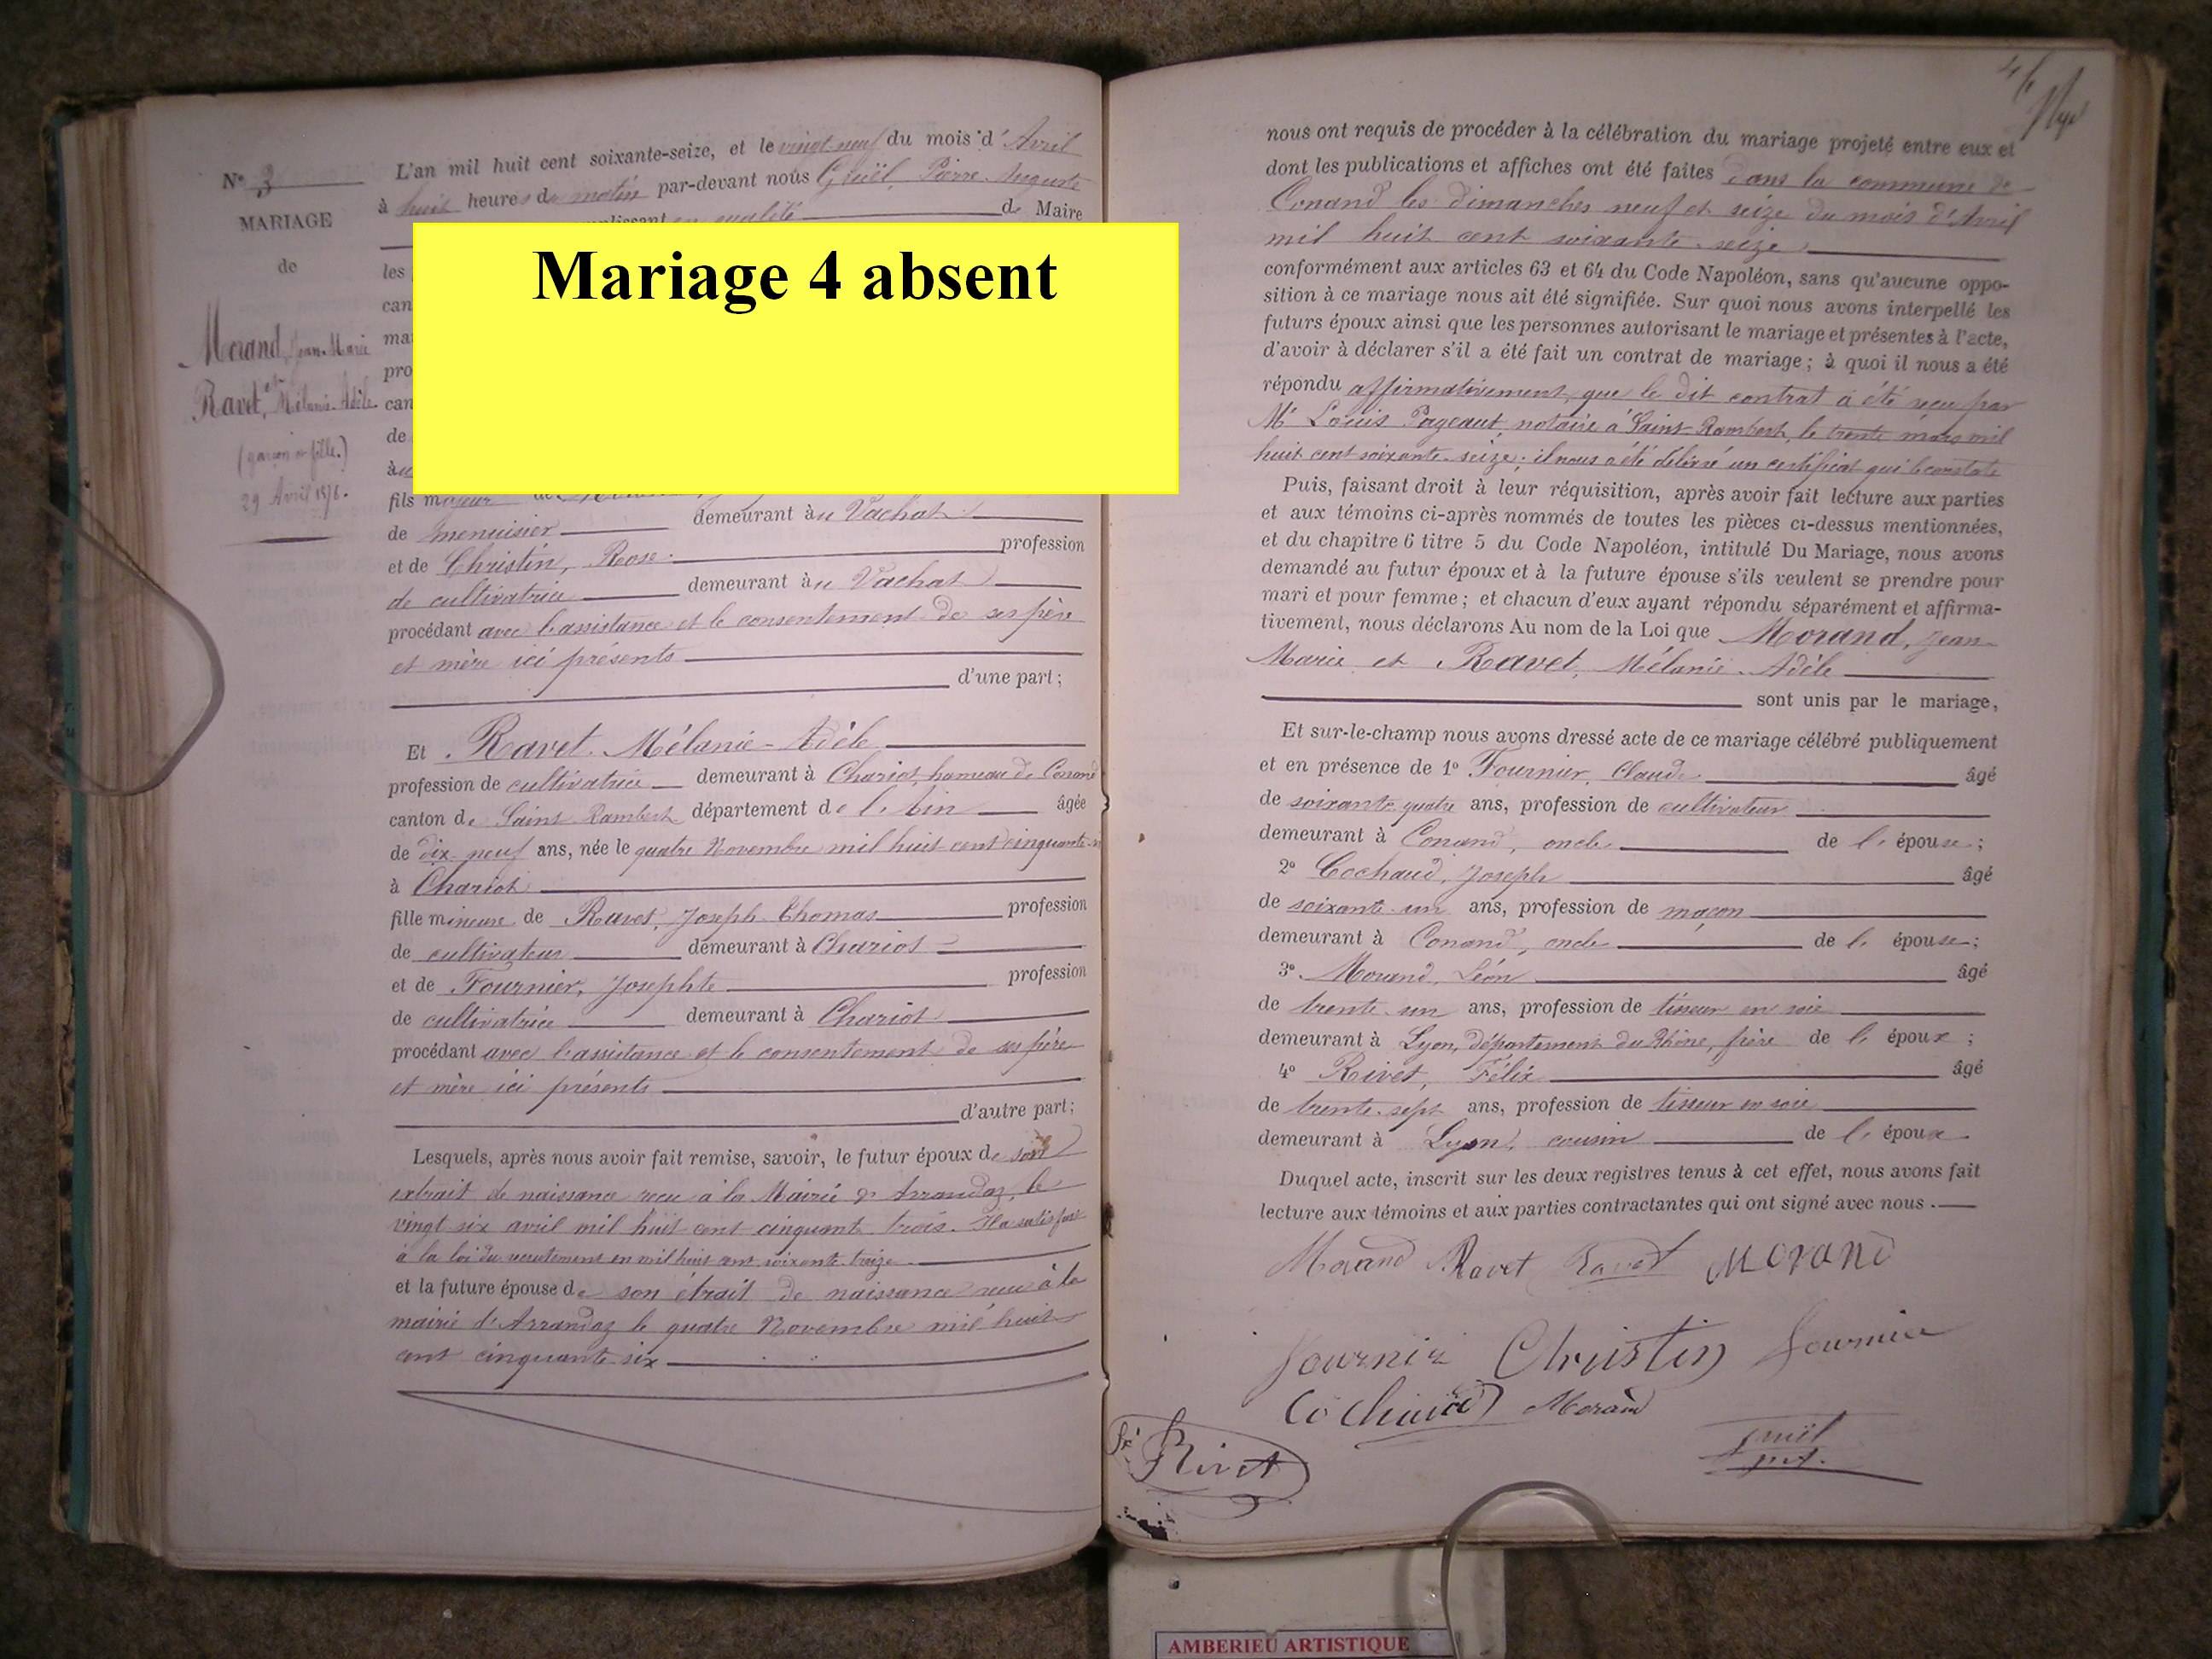 N° 3
MARIAGE
de
Morand, Jean-Marie
et
Ravet, Mélanie-Adèle
(garçon et fille.)
29 Avril 1876.
L'an mil huit cent soixante-seize, et le vingt-neuf du mois d'Avril
à huit heures du matin par-devant nous Guël, Pierre-Auguste
en qualité de Maire
Mariage 4 absent
les
can
ma
pro
can
de
au
fils majeur de
de menuisier demeurant au Vachat
et de Christin, Rose profession
de cultivatrice demeurant au Vachat
procédant avec l'assistance et le consentement de ses père
et mère ici présents
d'une part;
Et Ravet Mélanie-Adèle
profession de cultivatrice demeurant à Chariot, hameau de Conand
canton de Saint-Rambert département de l'Ain âgée
de dix-neuf ans, née le quatre Novembre mil huit cent cinquante-
à Chariot
fille mineure de Ravet, Joseph-Thomas profession
de cultivateur demeurant à Chariot
et de Fournier, Josephte profession
de cultivatrice demeurant à Chariot
procédant avec l'assistance et le consentement de ses père
et mère ici présents
d'autre part;
Lesquels, après nous avoir fait remise, savoir, le futur époux de son
extrait de naissance reçu à la Mairie d'Arrandaz, le
vingt six avril mil huit cent cinquante-trois. Il a satisfait
à la loi du recrutement en mil huit cent soixante-treize
et la future épouse de son étrait de naissance reçu à la
mairie d'Arrandaz le quatre Novembre mil huit
cent cinquante-six
nous ont requis de procéder à la célébration du mariage projeté entre eux et
dont les publications et affiches ont été faites dans la commune de
Conand les dimanches neuf et seize du mois d'Avril
mil huit cent soixante-seize
conformément aux articles 63 et 64 du Code Napoléon, sans qu'aucune oppo-
sition à ce mariage nous ait été signifiée. Sur quoi nous avons interpellé les
futurs époux ainsi que les personnes autorisant le mariage et présentes à l'acte,
d'avoir à déclarer s'il a été fait un contrat de mariage; à quoi il nous a été
répondu affirmativement, que le dit contrat a été reçu par
Me Louis Pageaut, notaire à Saint-Rambert, le trente mars mil
huit cent soixante-seize; il nous a été délivré un certificat qui le constate
Puis, faisant droit à leur réquisition, après avoir fait lecture aux parties
et aux témoins ci-après nommés de toutes les pièces ci-dessus mentionnées,
et du chapitre 6 titre 5 du Code Napoléon, intitulé Du Mariage, nous avons
demandé au futur époux et à la future épouse s'ils veulent se prendre pour
mari et pour femme; et chacun d'eux ayant répondu séparément et affirma-
tivement, nous déclarons Au nom de la Loi que Morand, Jean-
Marie et Ravet, Mélanie-Adèle
sont unis par le mariage,
Et sur-le-champ nous avons dressé acte de ce mariage célébré publiquement
et en présence de 1° Fournier, Claude âgé
de soixante-quatre ans, profession de cultivateur
demeurant à Conand, oncle de l'épouse;
2° Cochaud, Joseph âgé
de soixante-un ans, profession de maçon
demeurant à Conand, oncle de l'épouse;
3° Morand, Léon âgé
de trente-un ans, profession de tisseur en soie
demeurant à Lyon, département du Rhône, frère de l'époux;
4° Rivet, Félix âgé
de trente-sept ans, profession de tisseur en soie
demeurant à Lyon, cousin de l'époux
Duquel acte, inscrit sur les deux registres tenus à cet effet, nous avons fait
lecture aux témoins et aux parties contractantes qui ont signé avec nous.
Morand Ravet Ravet Morand
Fournier Christin Fournier
Cochaud Morand
Rivet
AMBERIEU ARTISTIQUE